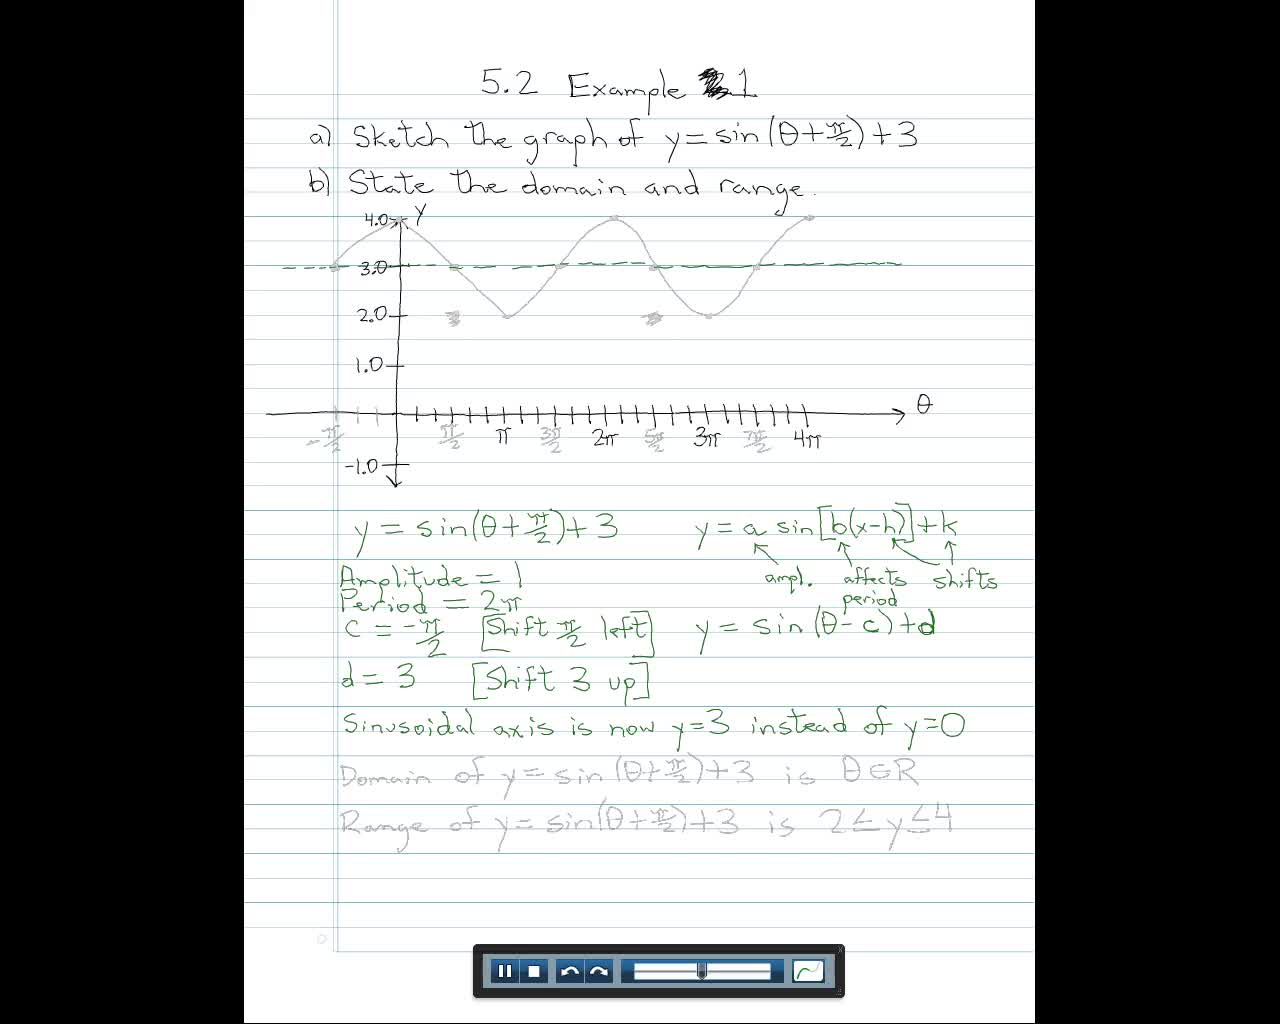 5.2 Example 1
a) Sketch the graph of y = sin(θ + π/2) + 3
b) State the domain and range.
4.0 y
3.0
2.0
1.0
θ
-π/2 π/2 π 3π/2 2π 5π/2 3π 7π/2 4π
-1.0
y = sin(θ + π/2) + 3
y = a sin[b(x-h)] + k
Amplitude = 1
ampl. affects period shifts
Period = 2π
c = -π/2 [Shift π/2 left]
y = sin(θ - c) + d
d = 3 [Shift 3 up]
Sinusoidal axis is now y=3 instead of y=0
Domain of y = sin(θ + π/2) + 3 is θ ∈ R
Range of y = sin(θ + π/2) + 3 is 2 ≤ y ≤ 4